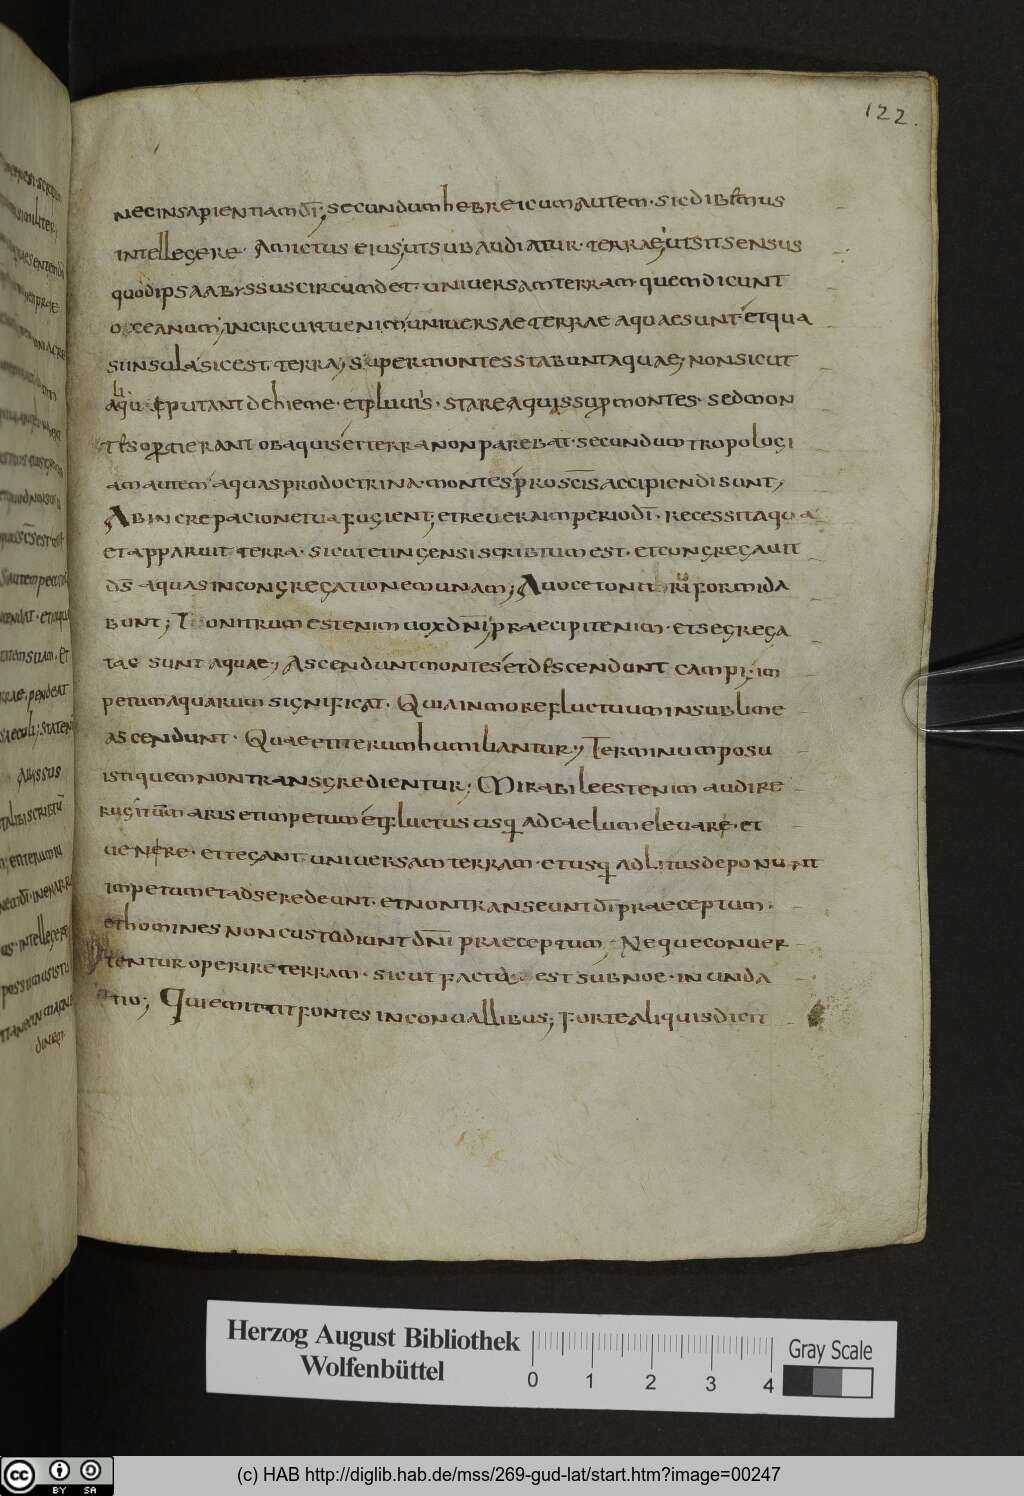 122.
nec in sapientiam dī; secundum hebreicum autem · sic dibemus
intellegere · Amictus eius; ut subaudiatur · terrae; ut sit sensus
quod ipsa abyssus circumdet · universam terram · quem dicunt
oxeanum; in circuitu enim universae terrae aquae sunt · et qua
si insula sic est terra; super montes stabunt aquae; non sicut
aliqui putant de hieme · et pluviis · stare aquis sup montes · sed mon
tes opertierant ob aquis et terra non parebat · secundum tropologi
am autem aquas pro doctrina · montes pro scīs accipiendi sunt;
Ab increpacione tua fugient; et revera imperio dī · recessit aqua
et apparuit terra · sicut et in gensi scribtum est · et congregavit
dś aquas in congregationem unam; A voce tonitrui formida
bunt; Tonitrum est enim vox dnī praecipit enim · et segrega
tae sunt aquae; Ascendunt montes et descendunt campi; im
petum aquarum significat · Quia in more fluctuum in sublime
ascendunt · Quae et iterum humiliantur; Terminum posu
isti quem non transgredientur; Mirabile est enim audire
rugitum maris et impetum et fluctus usq ad caelum elevare · et
venire · et tegant universam terram · et usq ad litus deponunt
impetum et ad se redeunt · et non transeunt dī praeceptum ·
et homines non custodiunt dnī praeceptum · Neque conver
tentur operire terram · sicut factū est sub noe · inunda
tio; Qui emittit fontes in convallibus; forte aliquis dicit
Herzog August Bibliothek
Wolfenbüttel
0 1 2 3 4
Gray Scale
cc BY SA
(c) HAB http://diglib.hab.de/mss/269-gud-lat/start.htm?image=00247